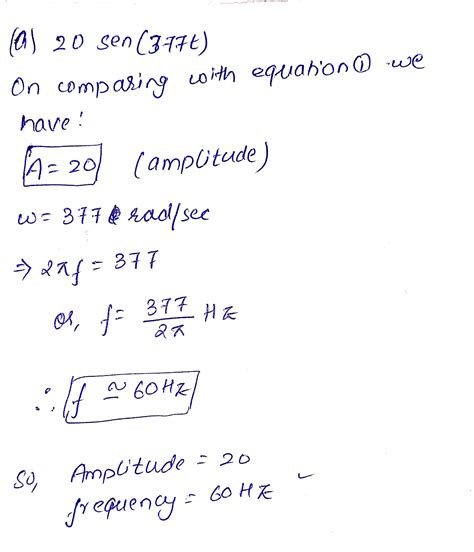 (a) 20 sen(377t)
On comparing with equation ① we
have!
A = 20 (amplitude)
w = 377 rad/sec
⇒ 2πf = 377
or, f = 377/2π Hz
∴ f ≃ 60 Hz
So, Amplitude = 20
frequency = 60 Hz